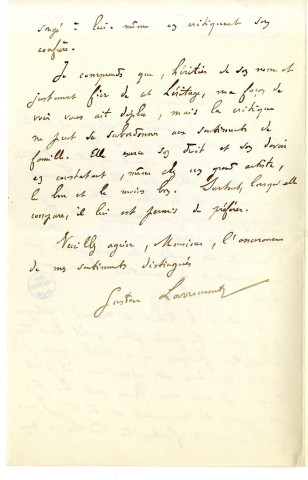 songé à lui-même en critiquant son
confrère.
Je comprends que, héritier de son nom et
justement fier de cet héritage, ma façon de
voir vous ait déplu, mais la critique
ne peut se subordonner aux sentiments de
famille. Elle exerce son droit et son devoir
en constatant, même chez un grand artiste,
le bon et le moins bon. Surtout, lorsqu'elle
compare, il lui est permis de préférer.
Veuillez agréer, Monsieur, l'assurance
de mes sentiments distingués
Gustave Larroumet